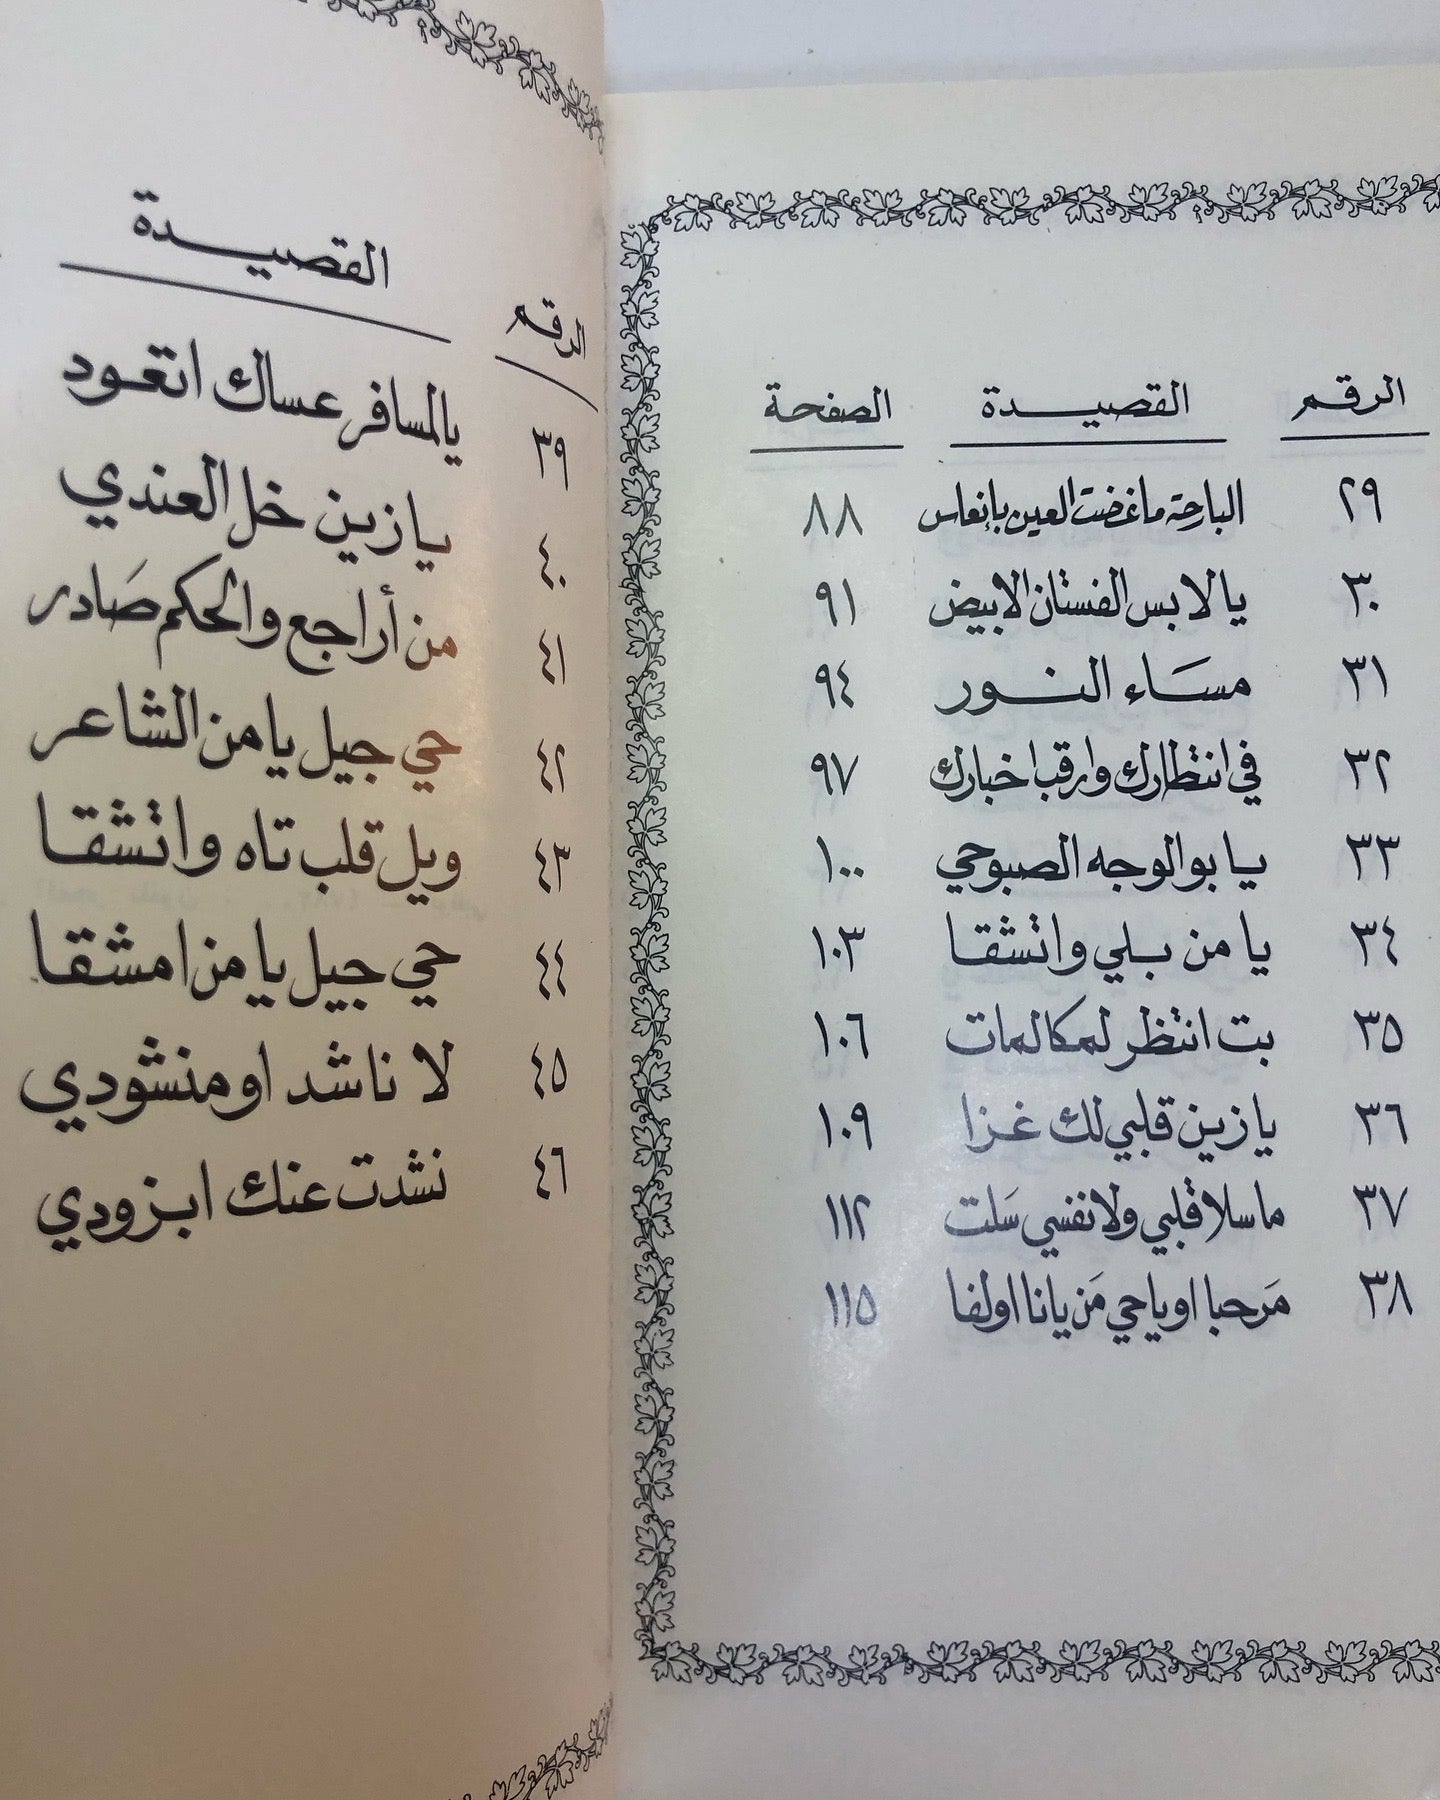 الرقم القصيدة الصفحة
٢٩ البارحة ما غضت العين بإنعاس ٨٨
٣٠ يا لابس الفستان الابيض ٩١
٣١ مسَاء النور ٩٤
٣٢ في انتظارك وارقب اخبارك ٩٧
٣٣ يا بو الوجه الصبوحي ١٠٠
٣٤ يا من بلي واتشقا ١٠٣
٣٥ بت انتظر لمكالمات ١٠٦
٣٦ يا زين قلبي لك غزا ١٠٩
٣٧ ما سلا قلبي ولا نفسي سَلت ١١٢
٣٨ مَرحبا او ياحي مَن يانا اولفا ١١٥
الرقم القصيدة
٣٩ يالمسافر عساك اتعود
٤٠ يا زين خل العندي
٤١ من أراجع والحكم صَادر
٤٢ حي جيل يا من الشاعر
٤٣ ويل قلب تاه واتشقا
٤٤ حي جيل يا من امشقا
٤٥ لا ناشد او منشودي
٤٦ نشدت عنك ابزودي